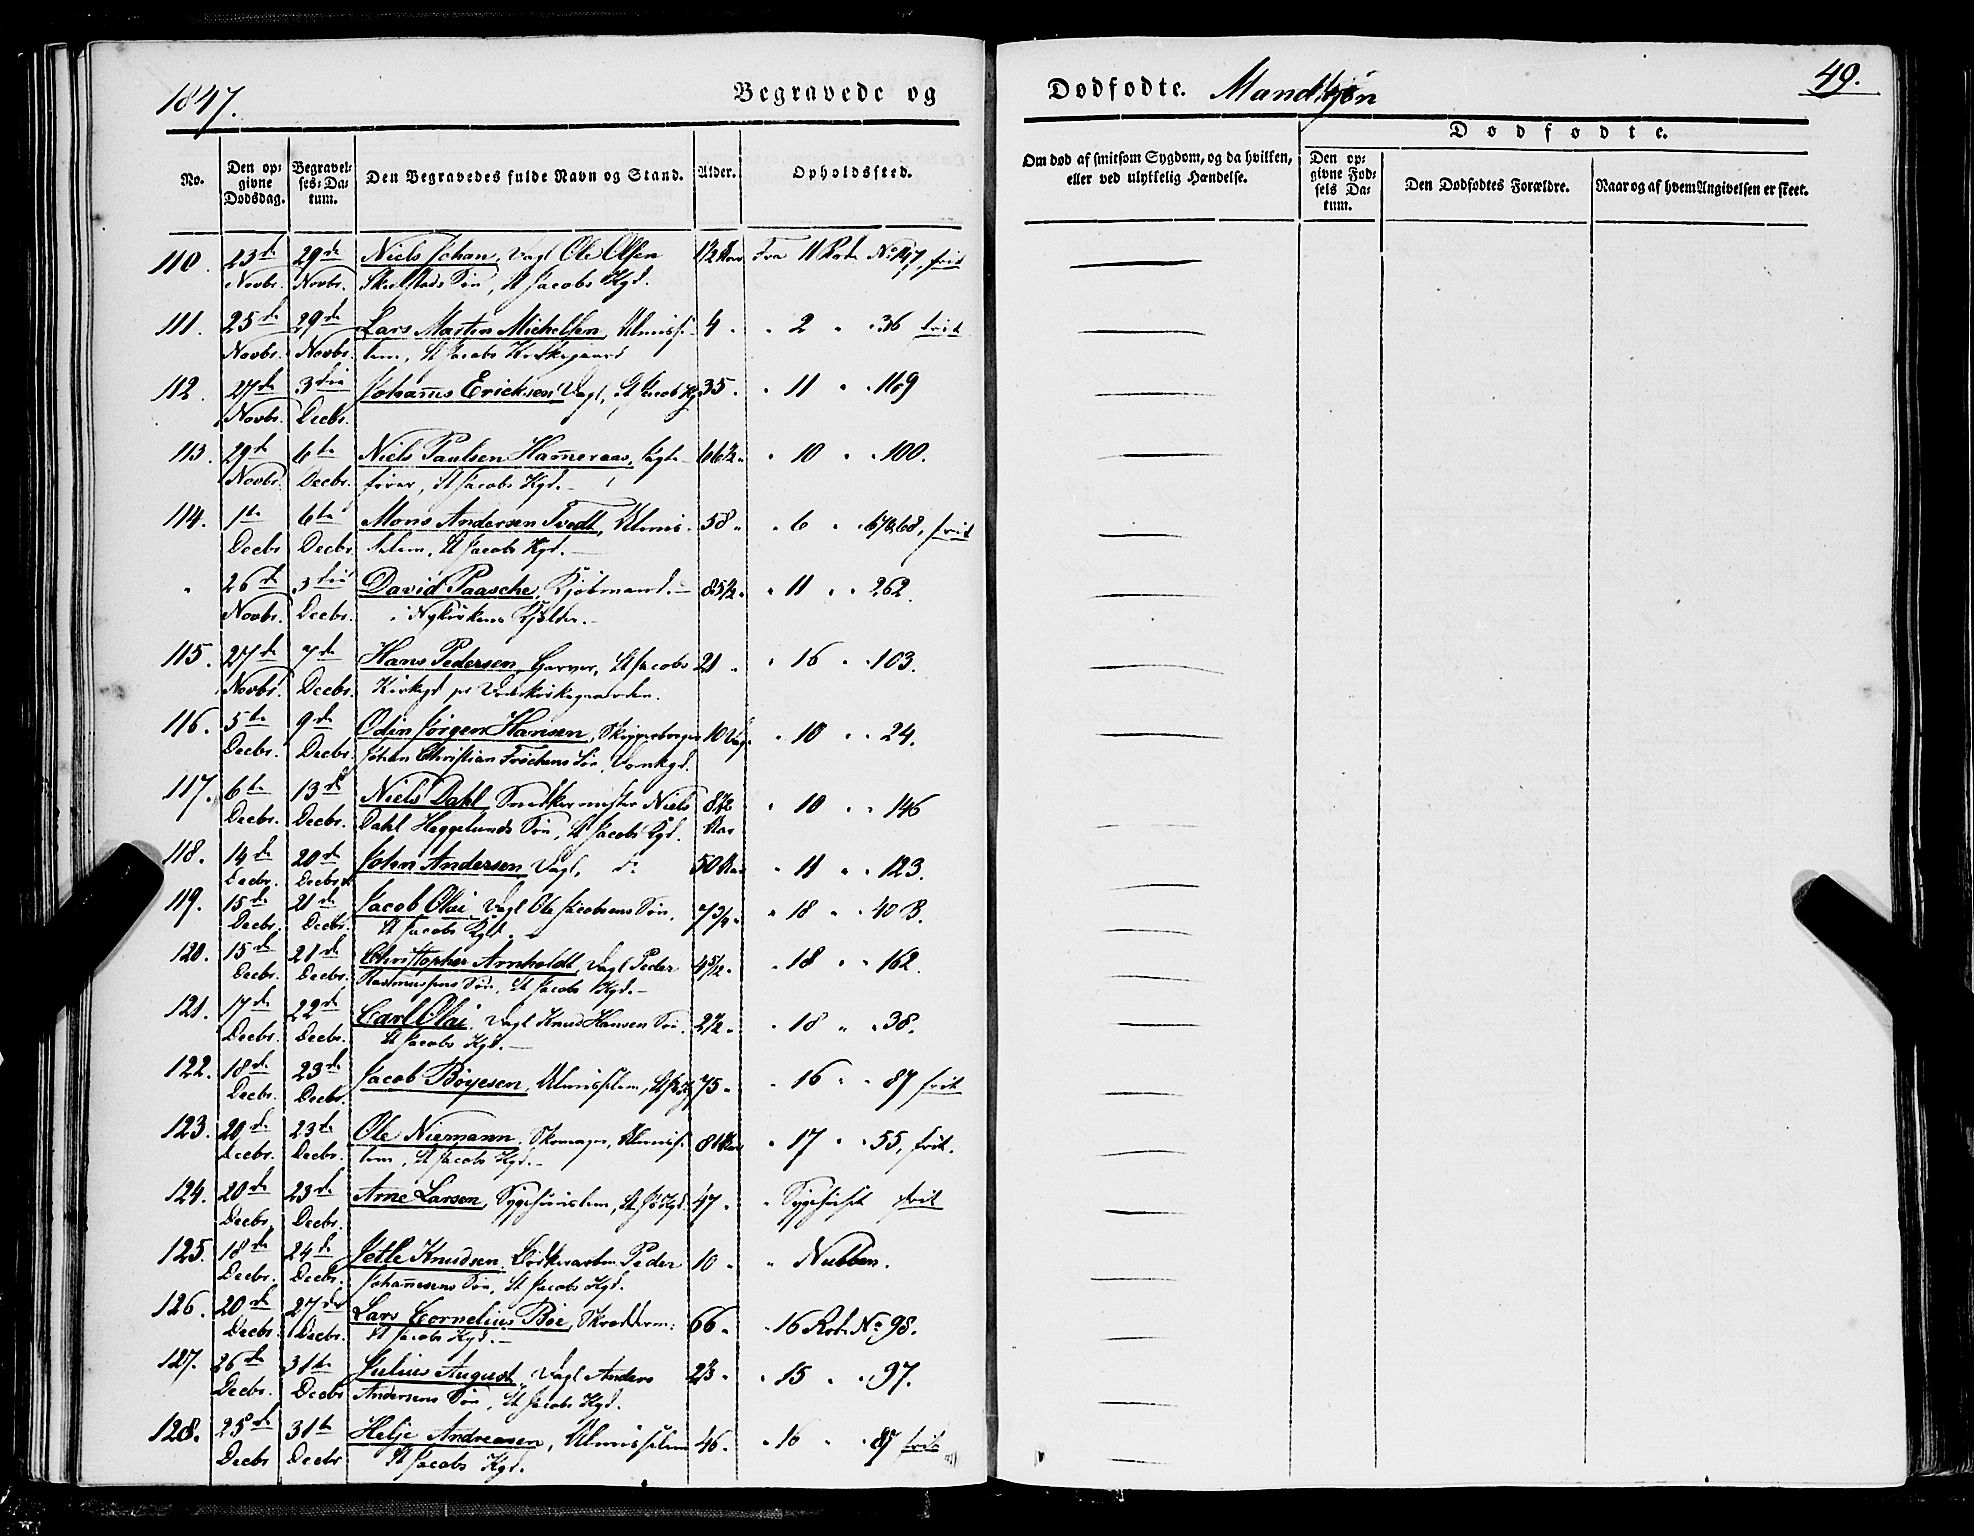 1847.
Begravede og
Dødfødte. Mandkjøn
49.
No.
Den op-
givne
Dødsdag.
Begravel-
ses-Da-
tum.
Den Begravedes fulde Navn og Stand.
Alder.
Opholdssted.
Om død af smitsom Sygdom, og da hvilken,
eller ved ulykkelig Hændelse.
Dødfødte.
Den op-
givne Fød-
sels Da-
tum.
Den Dødfødtes Forældre.
Naar og af hvem Angivelsen er skeet.
110. 23de 29de Niels Johan, Dagl Ole Olsen 1½ Aar Fra 11 Rode No 147, frit
Novbr. Novbr. Søn, St Jacobs Kgd.
111. 25de 29de Lars Martin Michelsen, Almisse- 4 " " 2 " " 36 frit
Novbr. Novbr. lem, St Jacobs Kirkegaard
112. 27de 3die Johannes Ericksen Dagl, St Jacobs Kgd 35 " " 11 " " 119
Novbr. Decbr.
113. 29de 6te Niels Paulsen Hameraas, Fragt- 66½ " " 10 " " 100.
Novbr. Decbr. fører, St Jacobs Kgd. -
114. 1te 6te Mons Andersen Tvedt, Almis- 58 " " 6 " " 67&68, frit
Decbr Decbr selem, St Jacobs Kgd. -
" 26de 3die David Paasche, Kjøbmand. - 85½ " " 11 " " 262.
Novbr. Decbr. i Nykirkens Kjelder. -
115. 27de 7de Hans Pedersen, Garver, St Jacobs 21 " " 16 " " 103.
Novbr. Decbr. Kirkegd
116. 5te 9de Odin Jørgen Hansen, Skipperborger 10 Dage " 10 " " 24.
Decbr. Decbr. Johan Christian Søn, Domkgd.
117. 6te 13de Niels Dahl, Snedkermester Niels 8½ " 10 " " 146
Decbr. Decbr. Dahl Heggelunds Søn, St Jacobs Kgd. Aar
118. 14de 20de John Andersen, Dagl, do 50 Aar " 11 " " 123.
Decbr. Decbr.
119. 15de 21de Jacob Olai, Dagl Ole Jacobsens Søn, 7¾ " " 18 " " 40 B.
Decbr. Decbr. St Jacobs Kgd.
120. 15de 21de Christopher Arnholdt, Dagl Peder 4 5/12 " " 18 " " 162.
Decbr. Decbr. Rasmussens Søn, St Jacobs Kgd. -
121. 17de 22de Carl Olai, Dagl Knud Hansen Søn. 2½ " " 18 " " 38.
Decbr. Decbr. St Jacobs Kgd. -
122. 18de 23de Jacob Bøyesen, Almisselem, St J Kgd 75 " " 16 " " 87 frit
Decbr. Decbr.
123. 20de 23de Ole Niemann, Skomager, Almisse- 81 Aar " 17 " " 55, frit.
Decbr. Decbr. lem, St Jacobs Kgd. -
124. 20de 23de Arne Larsen, Sygehuuslem, St J Kgd. 47 " " Sygehuset frit
Decbr. Decbr.
125. 18de 24de Jetle Knudsen, Peder 10 " " Nubben.
Decbr. Decbr. Johannesens Søn, St Jacobs Kgd.
126. 20de 27de Lars Cornelius Bøe, Skrædderm: 66 " " 16 Rode No 98.
Decbr. Decbr. St Jacobs Kgd. -
127. 26de 31te Julius August, Dagl Anders 2½ " " 15 " " 97.
Decbr. Decbr Andersens Søn, St Jacobs Kgd.
128. 25de 31te Helje Andreasen, Almisselem 46 " " 16 " " 87 frit
Decbr Decbr St Jacobs Kgd.